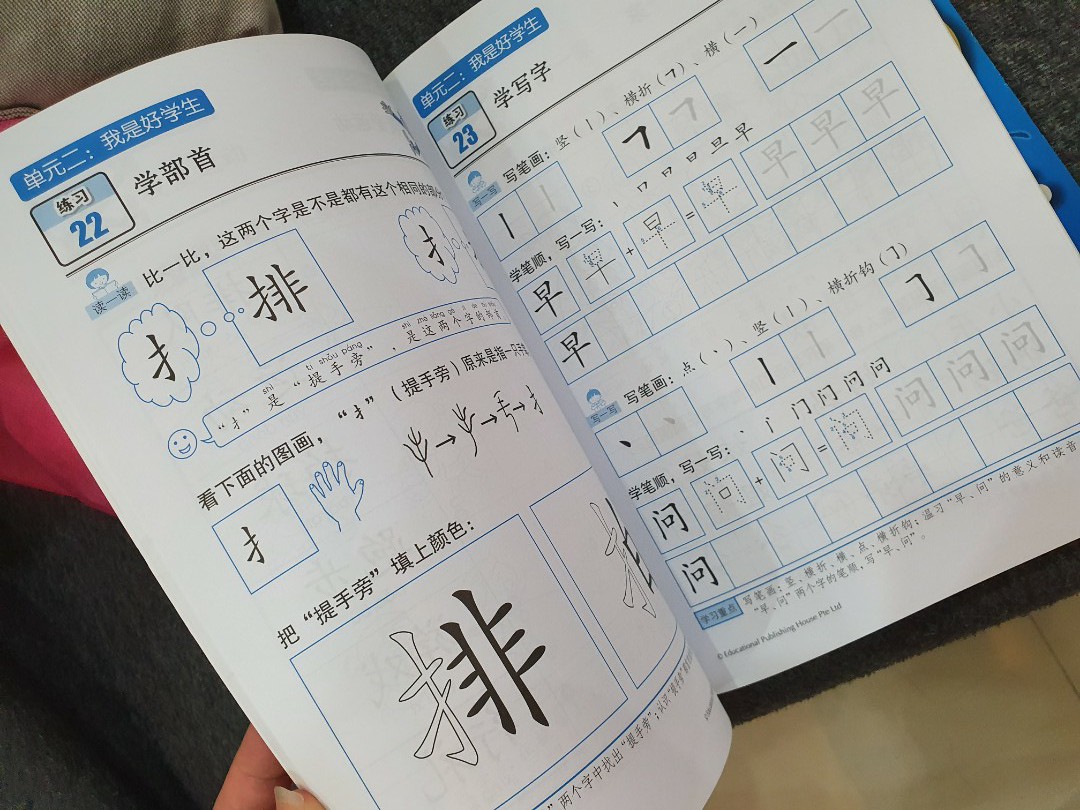 单元二：我是好学生
练习
22
学部首
读一读
比一比，这两个字是不是都有这个相同的部
扌
排
扌
shì tí shǒu páng shì
“扌”是“提手旁”，是这两个字的部首
看下面的图画，“扌”（提手旁）原来是指一只手
扌
→ → → 扌
把“提手旁”填上颜色：
排
扌
”两个字中找出“提手旁”；认识“提手旁”
单元二：我是好学生
练习
23
学写字
写一写
写笔画：竖（丨）、横折（𠃍）、横（一）
丨 丨 𠃍 𠃍 一 一
学笔顺，写一写：丨 口 日 日 旦 早
早 早 + 早 = 早 早 早 早
早
写一写
写笔画：点（丶）、竖（丨）、横折钩（𠃌）
丶 丶 丨 丨 𠃌 𠃌
学笔顺，写一写：丶 门 问 问 问
问 问 + 问 = 问 问 问 问
问
学习重点
写笔画：竖、横折、横、点、横折钩；温习“早、问”的意义和读音
“早、问”两个字的笔顺，写“早、问”。
© Educational Publishing House Pte Ltd